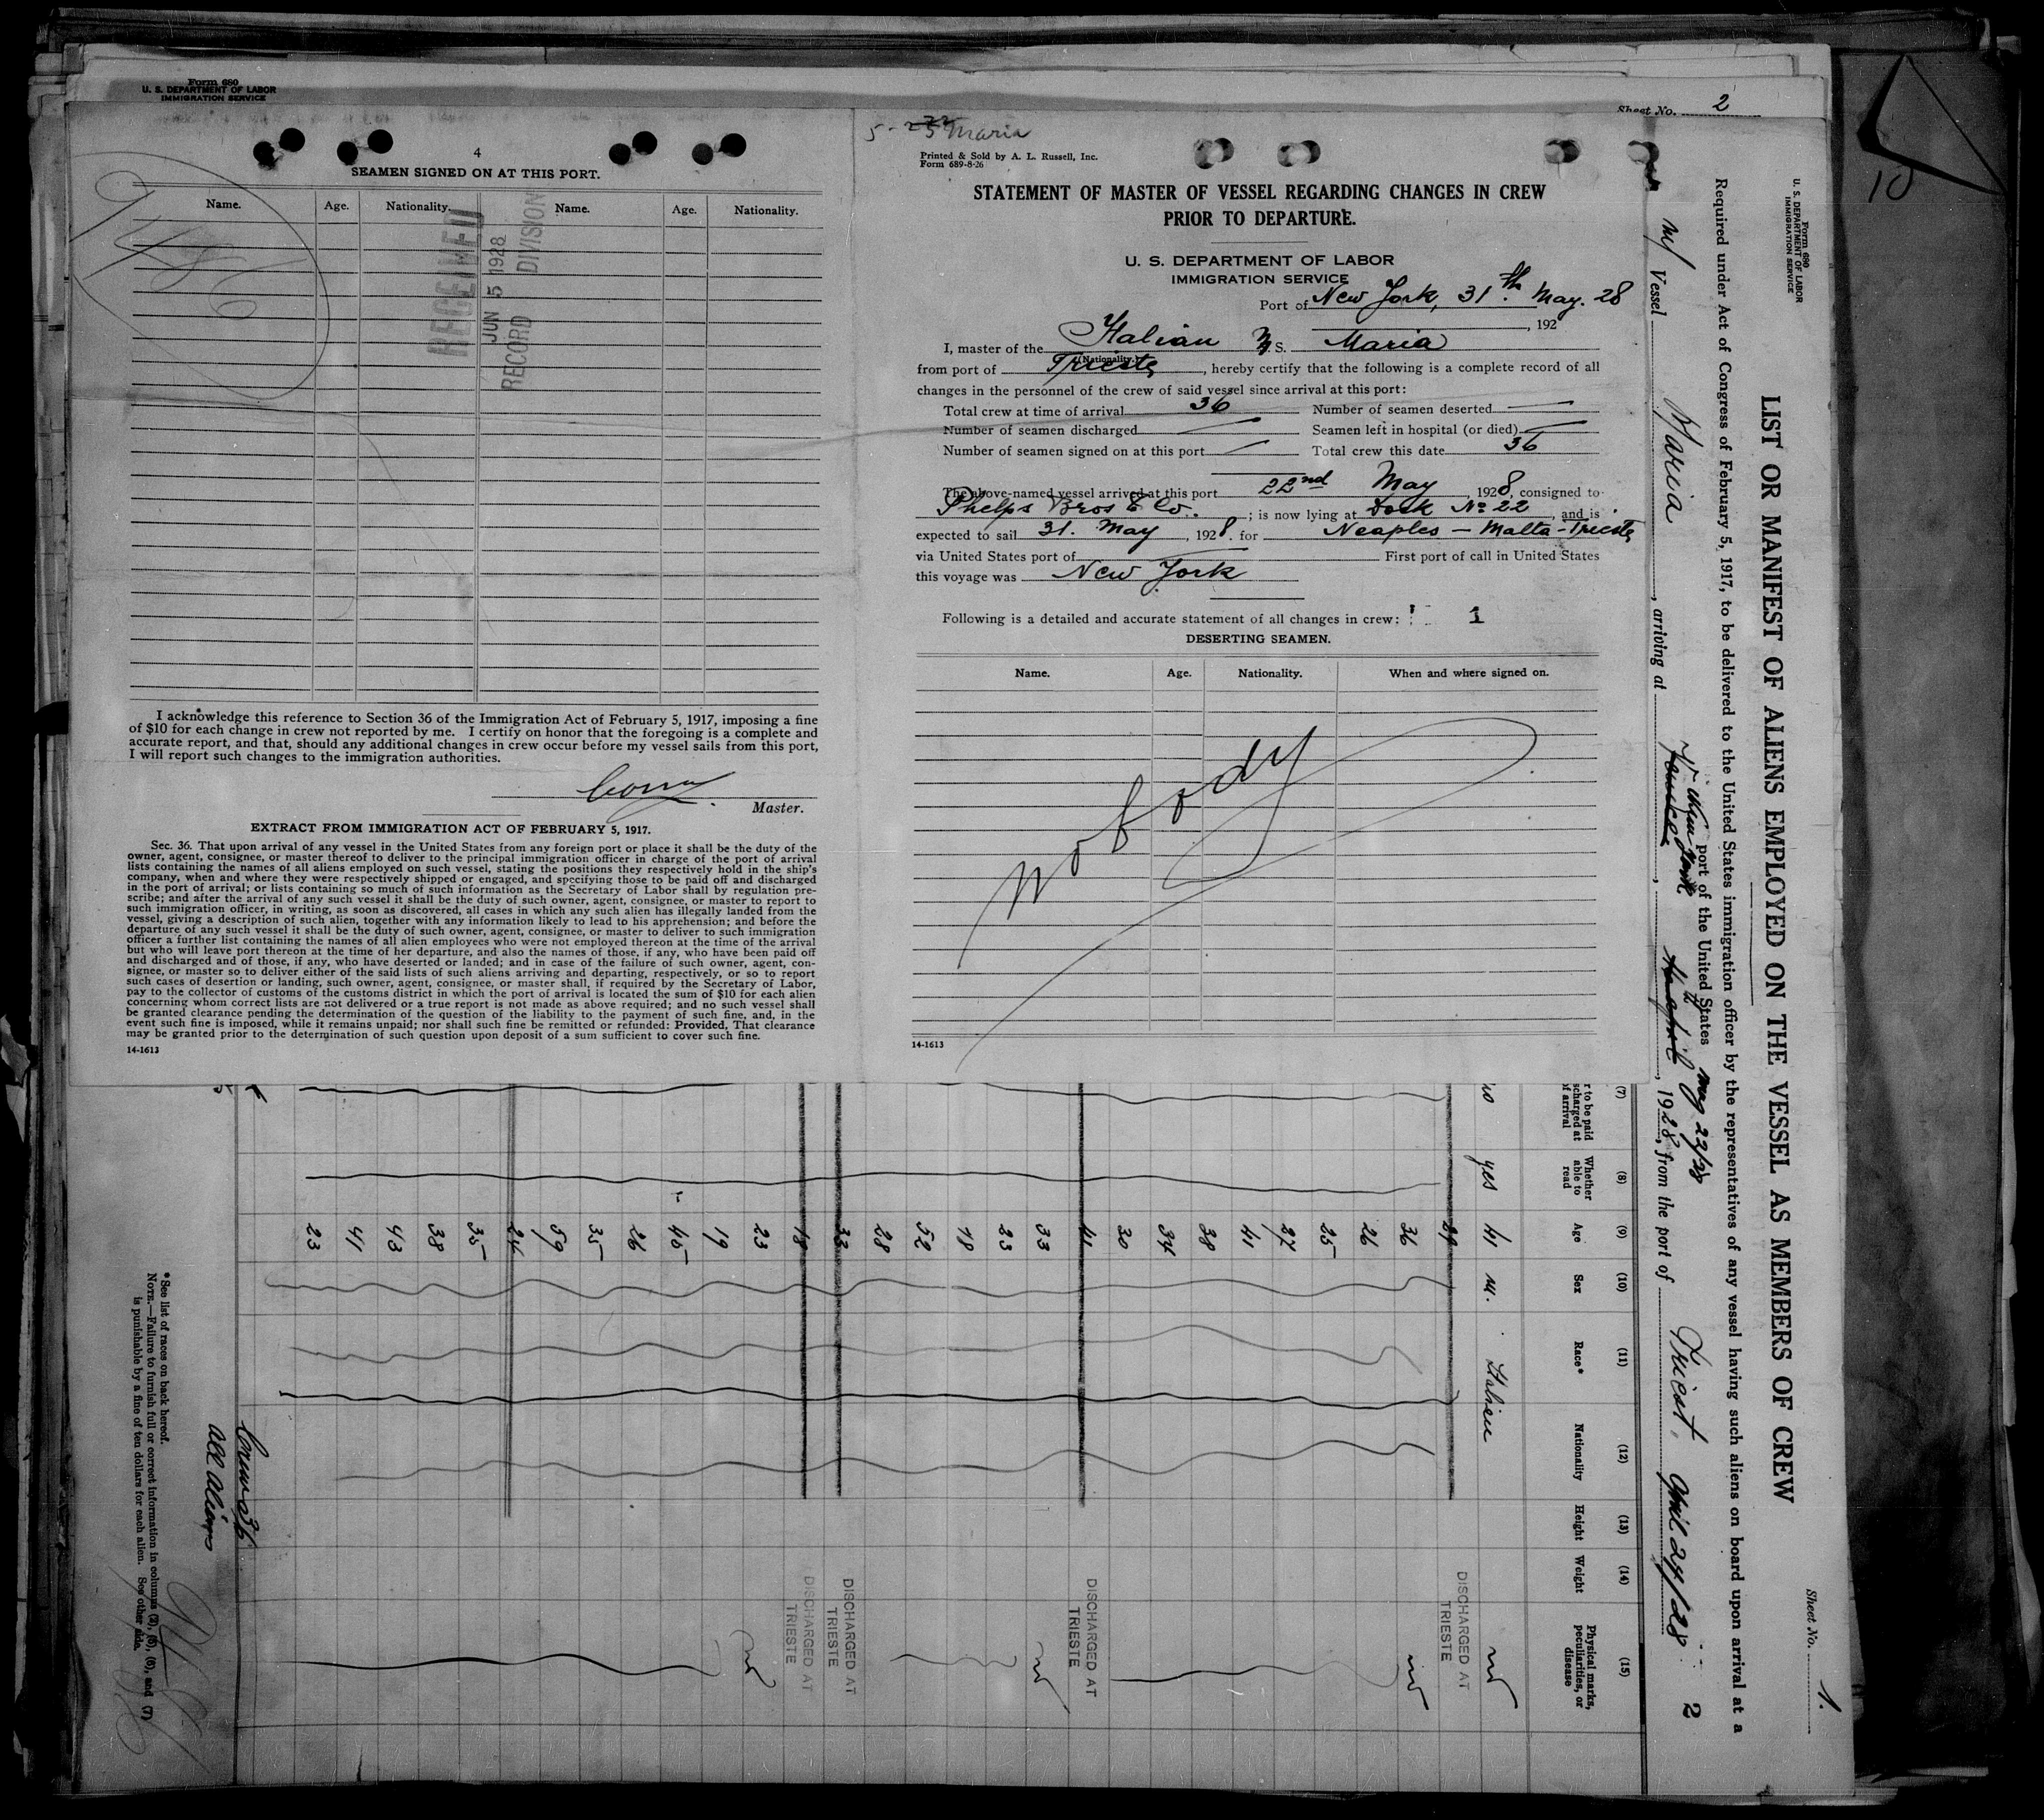 Form 680
U. S. DEPARTMENT OF LABOR
IMMIGRATION SERVICE
Sheet No. 2
4
SEAMEN SIGNED ON AT THIS PORT.
Name. Age. Nationality. Name. Age. Nationality.
RECEIVED
JUN 5 1928
RECORD DIVISION
I acknowledge this reference to Section 36 of the Immigration Act of February 5, 1917, imposing a fine
of $10 for each change in crew not reported by me. I certify on honor that the foregoing is a complete and
accurate report, and that, should any additional changes in crew occur before my vessel sails from this port,
I will report such changes to the immigration authorities.
Master.
EXTRACT FROM IMMIGRATION ACT OF FEBRUARY 5, 1917.
Sec. 36. That upon arrival of any vessel in the United States from any foreign port or place it shall be the duty of the
owner, agent, consignee, or master thereof to deliver to the principal immigration officer in charge of the port of arrival
lists containing the names of all aliens employed on such vessel, stating the positions they respectively hold in the ship's
company, when and where they were respectively shipped or engaged, and specifying those to be paid off and discharged
in the port of arrival; or lists containing so much of such information as the Secretary of Labor shall by regulation pre-
scribe; and after the arrival of any such vessel it shall be the duty of such owner, agent, consignee, or master to report to
such immigration officer, in writing, as soon as discovered, all cases in which any such alien has illegally landed from the
vessel, giving a description of such alien, together with any information likely to lead to his apprehension; and before the
departure of any such vessel it shall be the duty of such owner, agent, consignee, or master to deliver to such immigration
officer a further list containing the names of all alien employees who were not employed thereon at the time of the arrival
but who will leave port thereon at the time of her departure, and also the names of those, if any, who have been paid off
and discharged and of those, if any, who have deserted or landed; and in case of the failure of such owner, agent, con-
signee, or master so to deliver either of the said lists of such aliens arriving and departing, respectively, or so to report
such cases of desertion or landing, such owner, agent, consignee, or master shall, if required by the Secretary of Labor,
pay to the collector of customs of the customs district in which the port of arrival is located the sum of $10 for each alien
concerning whom correct lists are not delivered or a true report is not made as above required; and no such vessel shall
be granted clearance pending the determination of the question of the liability to the payment of such fine, and, in the
event such fine is imposed, while it remains unpaid; nor shall such fine be remitted or refunded: Provided, That clearance
may be granted prior to the determination of such question upon deposit of a sum sufficient to cover such fine.
14-1613
Maria
Printed & Sold by A. L. Russell, Inc.
Form 689-8-26
STATEMENT OF MASTER OF VESSEL REGARDING CHANGES IN CREW
PRIOR TO DEPARTURE.
U. S. DEPARTMENT OF LABOR
IMMIGRATION SERVICE
Port of New York, 31th. May. 28
, 192
I, master of the Italian M. S. Maria
(Nationality.)
from port of Trieste, hereby certify that the following is a complete record of all
changes in the personnel of the crew of said vessel since arrival at this port:
Total crew at time of arrival 36 Number of seamen deserted —
Number of seamen discharged — Seamen left in hospital (or died) —
Number of seamen signed on at this port — Total crew this date 36
The above-named vessel arrived at this port 22nd May, 1928, consigned to
Phelps Bros & Co. ; is now lying at Dock No 22, and is
expected to sail 31. May, 1928. for Neaples - Malta - Trieste
via United States port of — First port of call in United States
this voyage was New York
Following is a detailed and accurate statement of all changes in crew: 1
DESERTING SEAMEN.
Name. Age. Nationality. When and where signed on.
nobody
14-1613
Form 680
U. S. DEPARTMENT OF LABOR
IMMIGRATION SERVICE
Sheet No. 1.
LIST OR MANIFEST OF ALIENS EMPLOYED ON THE VESSEL AS MEMBERS OF CREW
Required under Act of Congress of February 5, 1917, to be delivered to the United States immigration officer by the representatives of any vessel having such aliens on board upon arrival at a
port of the United States
m/ Vessel Maria, arriving at New York, May 22/28, 1928, from the port of Triest, April 24/28 2
(7) (8) (9) (10) (11) (12) (13) (14) (15)
r to be paid
scharged at
of arrival
Whether able to read
Age
Sex
Race*
Nationality
Height
Weight
Physical marks, peculiarities, or disease
no yes 41 m. Italien no
39 DISCHARGED AT TRIESTE
36 no
26
25
27
41
38
34
30
41 DISCHARGED AT TRIESTE
33 no
23
18
52
28
33 DISCHARGED AT TRIESTE
18 DISCHARGED AT TRIESTE
23 no
19
45
26
35
59
24
35
38
43
41
23
Crew 36
all aliens
*See list of races on back hereof.
NOTE.—Failure to furnish full or correct information in columns (2), (5), (6), and (7)
is punishable by a fine of ten dollars for each alien. See other side.
10